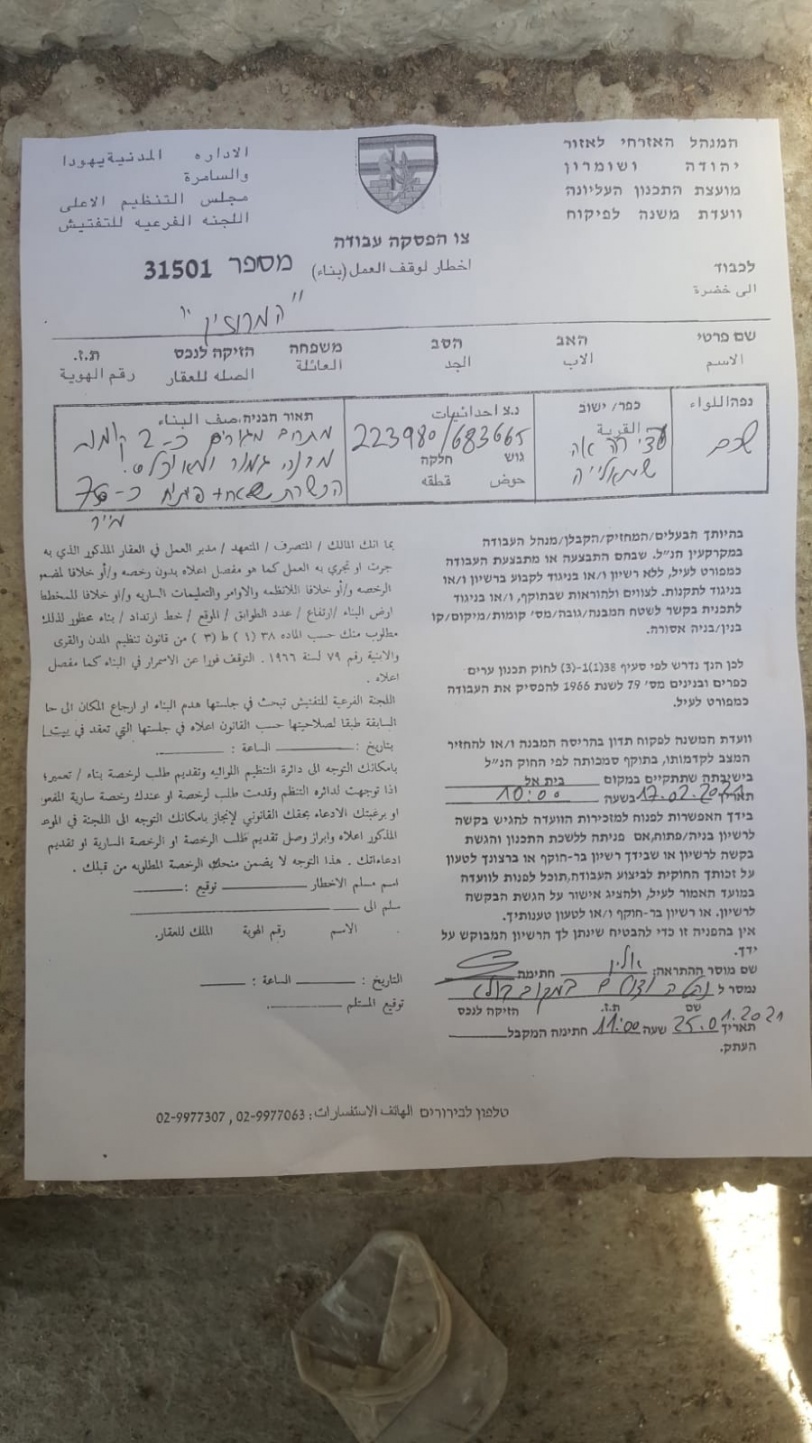 המנהל האזרחי לאזור
יהודה ושומרון
מועצת התכנון העליונה
וועדת משנה לפיקוח
الاداره المدنية يهودا
والسامرة
مجلس التنظيم الاعلى
اللجنه الفرعيه للتفتيش
צו הפסקה עבודה
اخطار لوقف العمل (بناء) מספר 31501
לכבוד
الى حضرة
שם פרטי האב הסב משפחה הזיקה לנכס ת.ז.
الاسم الاب الجد العائلة الصله للعقار رقم الهوية
נפה\اللواء כפר/ ישוב נ.צ احداثيات תאור הבניה،صف البناء
القرية 223980/683665 מתחם מגורים כ-2 קומות
שכם גוש חלקה
حوض قطقه
הכשרת שטח כ-
מ"ר
בהיותך הבעלים/המחזיק/הקבלן/מנהל העבודה
במקרקעין הנ"ל. שבהם התבצעה או מתבצעת העבודה
כמפורט לעיל, ללא רשיון ו/או בניגוד לקבוע ברשיון ו/או
בניגוד לתקנות. לצווים ולהוראות שבתוקף, ו/או בניגוד
לתכנית בקשר לשטח המבנה/גובה/מס' קומות/מיקום/קו
בנין/בניה אסורה.
לכן הנך נדרש לפי סעיף 38(1)-(3) לחוק תכנון ערים
כפרים ובנינים מס' 79 לשנת 1966 להפסיק את העבודה
כמפורט לעיל.
וועדת המשנה לפקוח תדון בהריסה המבנה ו/או להחזיר
המצב לקדמותו, בתוקף סמכותה לפי החוק הנ"ל
בישיבתה שתתקיים במקום בית אל
תאריך 17.02.2021 בשעה 10:00
בידך האפשרות לפנות למזכירות הוועדה להגיש בקשה
לרשיון בניה/פתוח,אם פניתה ללשכת התכנון והגשת
בקשה לרשיון או שבידך רשיון בר-תוקף או ברצונך לטעון
על זכותך החוקית לביצוע העבודה,תוכל לפנות לוועדה
במועד האמור לעיל, ולהציג אישור על הגשת הבקשה
לרשיון. או רשיון בר-תוקף ו/או לטעון טענותיך.
אין בהפניה זו כדי להבטיח שינתן לך הרשיון המבוקש על
ידך.
שם מוסר ההתראה: חתימת
נמסר ל
שם ת.ז. הזיקה לנכס
תאריך 25.01.2021 שעה 11:00 חתימה המקבל
העתק.
بما انك المالك / المتصرف / المتعهد / مدير العمل في العقار المذكور الذي به
جرت او تجري به العمل كما هو مفصل اعلاه بدون رخصه و/أو خلافا لمضمو
الرخصه و/أو خلافا اللانظمه والاوامر والتعليمات الساريه و/او خلافا للمخطط
ارض البناء /ارتفاع / عدد الطوابق / الموقع / خط ارتداد / بناء محظور لذلك
مطلوب منك حسب الماده ٣٨ (١) ط (٣) من قانون تنظيم المدن والقرى
والابنية رقم ٧٩ لسنة ١٩٦٦ . التوقف فورا عن الاسمرار في البناء كما مفصل
اعلاه .
اللجنة الفرعية للتفتيش تبحث في جلستها هدم البناء او ارجاع المكان الى حا
السابقة طبقا لصلاحيتها حسب القانون اعلاه في جلستها التي تعقد في بيت
بتاريخ : الساعة :
بامكانك التوجه الى دائرة التنظيم اللوائيه وتقديم طلب لرخصة بناء / تعمير؛
اذا توجهت لدائره التنظم وقدمت طلب لرخصة او عندك رخصة سارية المفعو
او برغبتك الادعاء بحقك القانوني لإنجاز بامكانك التوجه الى اللجنة في الموع
المذكور اعلاه وابراز وصل تقديم طلب الرخصة او الرخصة السارية او تقديم
ادعاءاتك . هذا التوجه لا يضمن منحك الرخصة المطلوبه من قبلك .
اسم مسلم الاخطار توقيع :
سلم الى
الاسم رقم الهوية الملك للعقار.
التاريخ : الساعة :
توقيع المستلم
טלפון לבירורים الهاتف الاستفسارات : 02-9977063 , 02-9977307